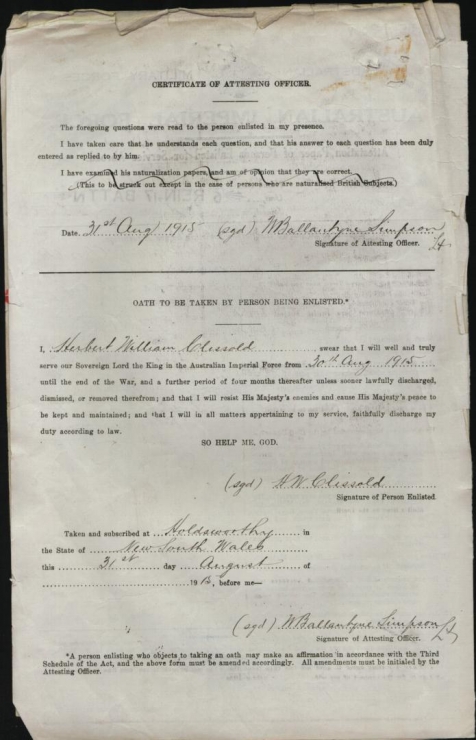 CERTIFICATE OF ATTESTING OFFICER.
The foregoing questions were read to the person enlisted in my presence.
I have taken care that he understands each question, and that his answer to each question has been duly
entered as replied to by him.
I have examined his naturalisation papers, and am of opinion that they are correct.
(This to be struck out except in the case of persons who are naturalised British Subjects.)
Date. 31st Aug 1915 (sgd) W Ballantyne Simpson Lt
Signature of Attesting Officer.
OATH TO BE TAKEN BY PERSON BEING ENLISTED.*
I, Herbert William Clissold swear that I will well and truly
serve our Sovereign Lord the King in the Australian Imperial Force from 30th Aug 1915
until the end of the War, and a further period of four months thereafter unless sooner lawfully discharged,
dismissed, or removed therefrom; and that I will resist His Majesty's enemies and cause His Majesty's peace to
be kept and maintained; and that I will in all matters appertaining to my service, faithfully discharge my
duty according to law.
SO HELP ME, GOD.
(sgd) H W Clissold
Signature of Person Enlisted.
Taken and subscribed at Holdsworthy in
the State of New South Wales
this 31st day August of
1915, before me—
(sgd) W Ballantyne Simpson Lt
Signature of Attesting Officer.
*A person enlisting who objects to taking an oath may make an affirmation in accordance with the Third
Schedule of the Act, and the above form must be amended accordingly. All amendments must be initialed by the
Attesting Officer.